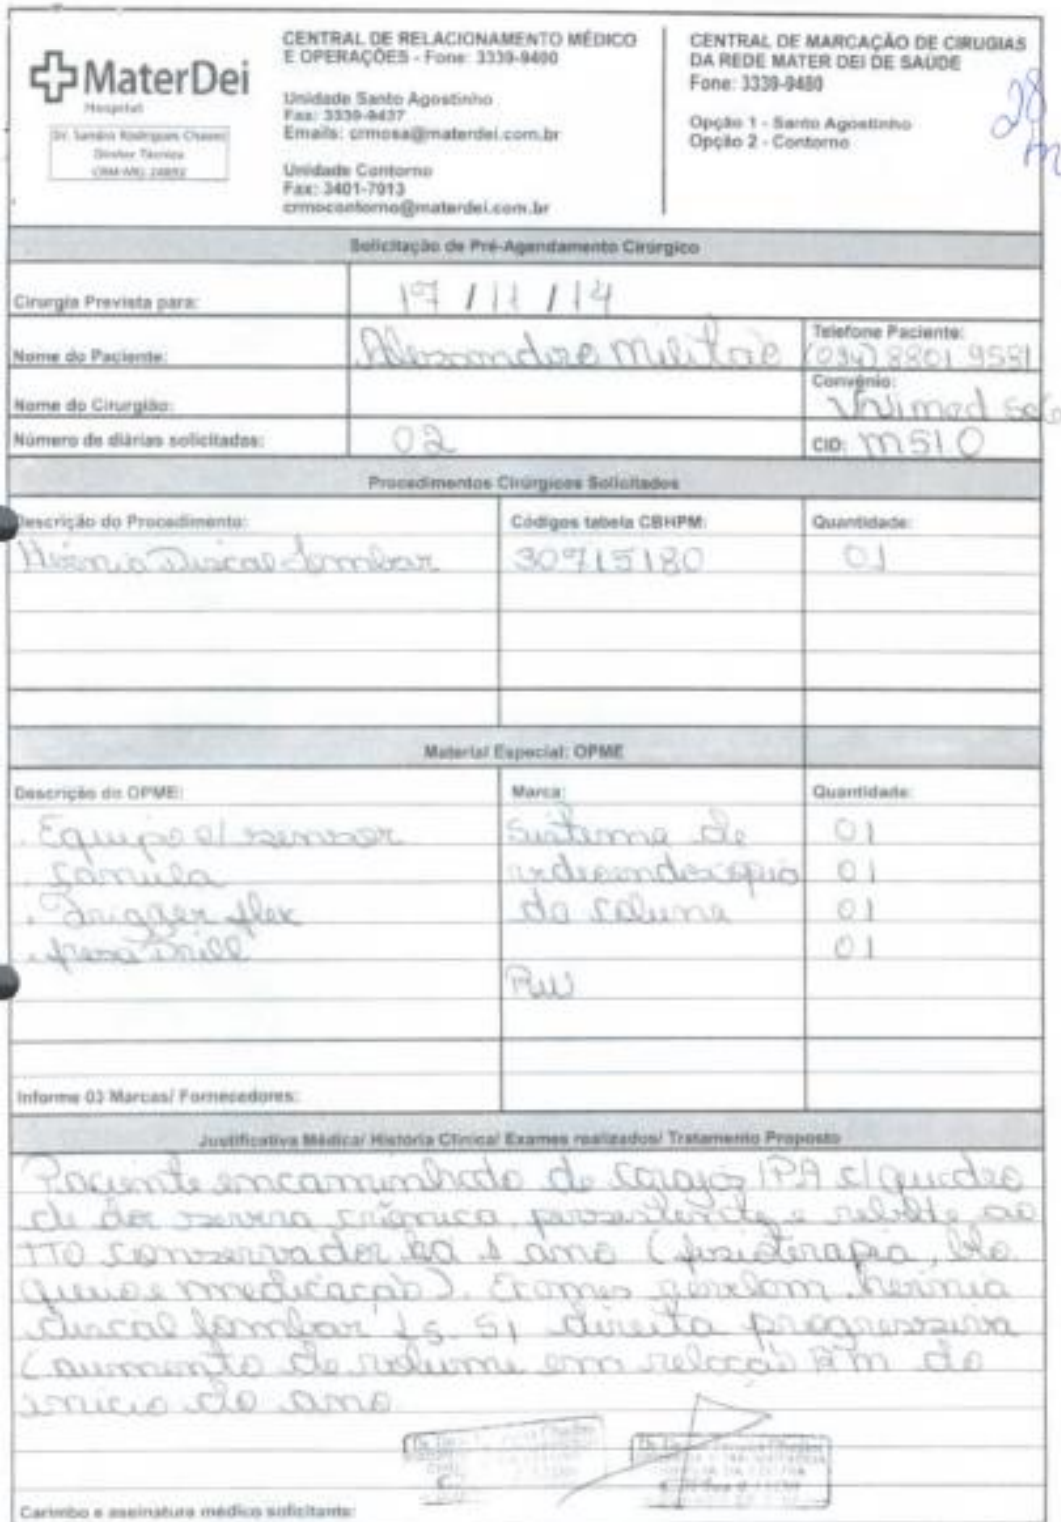 MaterDei
Hospital
Dr. Sandro Rodrigues Chaves
Diretor Técnico
CRM-MG 24892
CENTRAL DE RELACIONAMENTO MÉDICO
E OPERAÇÕES - Fone: 3339-9400
Unidade Santo Agostinho
Fax: 3339-9437
Emails: crmosa@materdei.com.br
Unidade Contorno
Fax: 3401-7013
crmocontorno@materdei.com.br
CENTRAL DE MARCAÇÃO DE CIRUGIAS
DA REDE MATER DEI DE SAÚDE
Fone: 3339-9480
Opção 1 - Santo Agostinho
Opção 2 - Contorno
28
m
Solicitação de Pré-Agendamento Cirúrgico
Cirurgia Prevista para: 17 / 11 / 14
Nome do Paciente: Alexandre Militão
Telefone Paciente:
(094) 8801 9551
Nome do Cirurgião:
Convênio:
Unimed
Número de diárias solicitadas: 02
CID: M510
Procedimentos Cirúrgicos Solicitados
Descrição do Procedimento: Códigos tabela CBHPM: Quantidade:
Hérnia Discal Lombar 30715180 01
Material Especial: OPME
Descrição do OPME: Marca: Quantidade:
. Equipo c/ sensor Sistema de 01
. Canula videoendoscopia 01
. Trigger flex da coluna 01
. Drill 01
Informe 03 Marcas/ Fornecedores:
Justificativa Médica/ História Clínica/ Exames realizados/ Tratamento Proposto
Paciente encaminhado de Carajás/PA c/ quadro
de dor severa crônica, persistente e rebelde ao
TTO conservador há 1 ano (fisioterapia, blo
queio e medicação). Exames revelam hérnia
discal lombar L5-S1 direita progressiva
(aumento de volume em relação RM do
início do ano
Carimbo e assinatura médico solicitante: